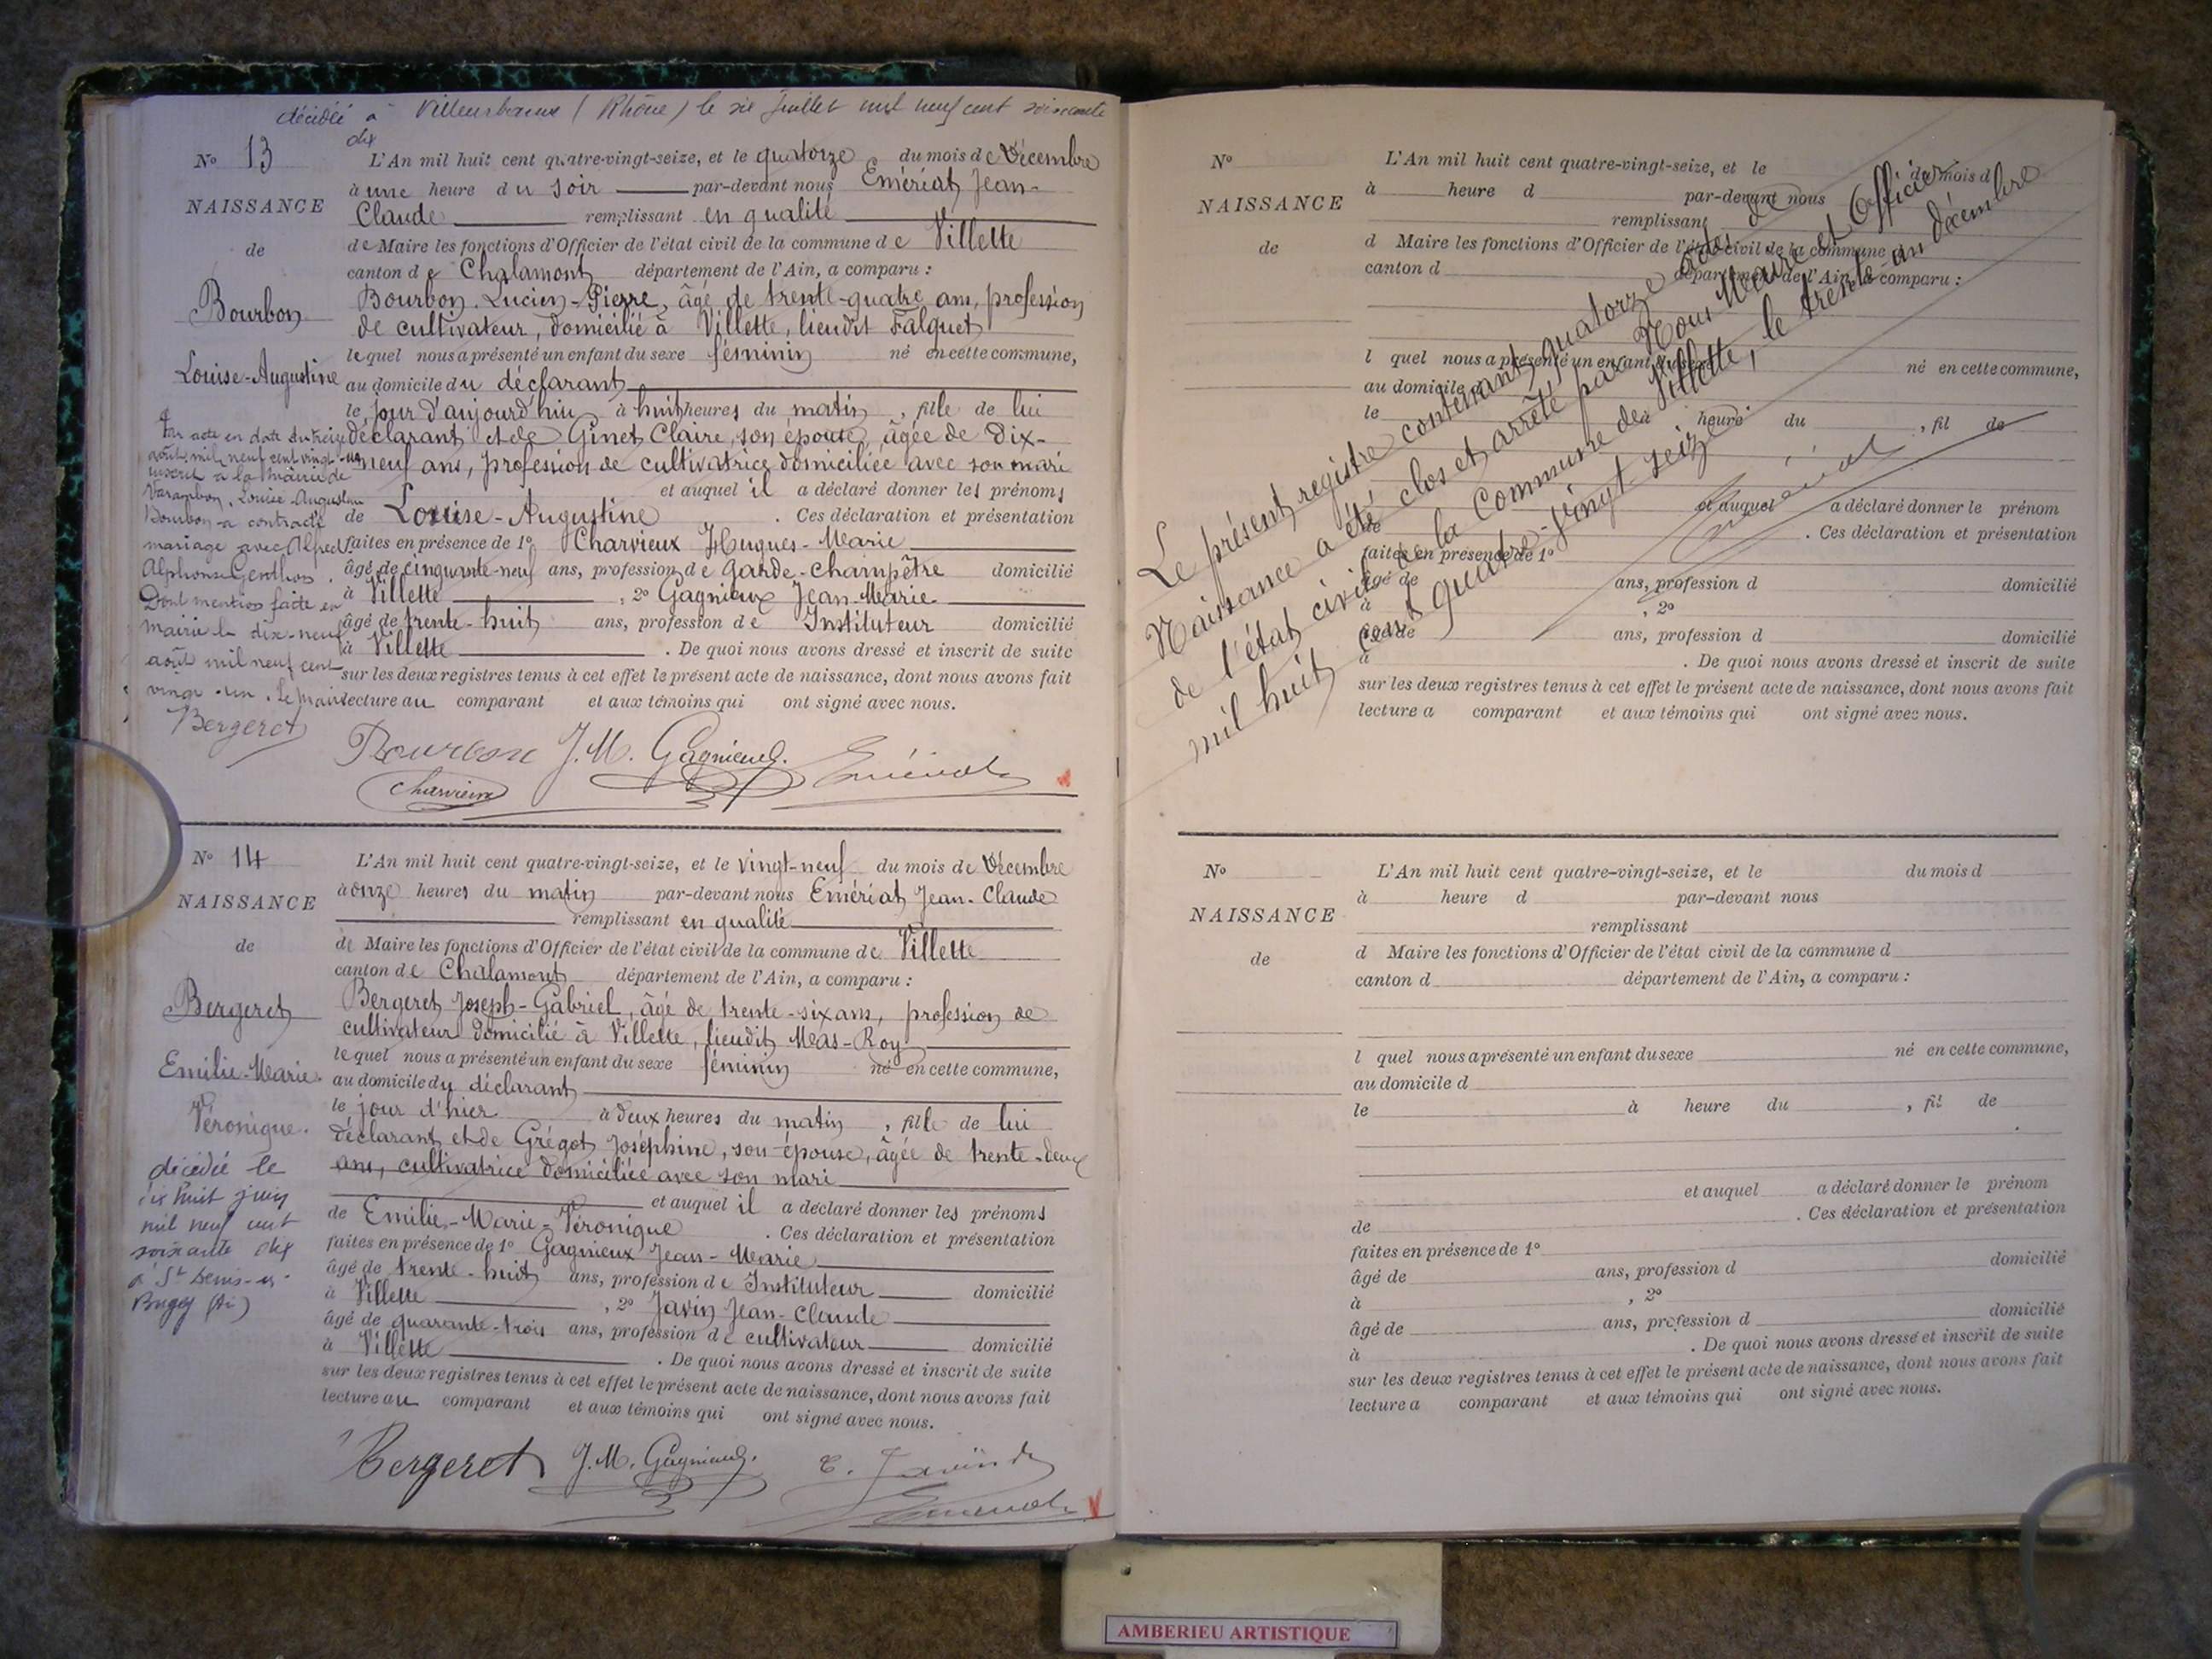 décédé à Villeurbanne (Rhône) le six juillet mil neuf cent soixante
dix
N° 13
NAISSANCE
de
Bourbon
Louise-Augustine
Par acte en date du treize
août mil neuf cent vingt-un
inscrit à la mairie de
Varambon, Louise Augustine
Bourbon a contracté
mariage avec Alfred
Alphonse Genthon.
Dont mention faite en
mairie le dix-neuf
août mil neuf cent
vingt-un. Le Maire
Bergeret
L'An mil huit cent quatre-vingt-seize, et le quatorze du mois de Décembre
à une heure du soir par-devant nous Emériat Jean-
Claude remplissant en qualité
de Maire les fonctions d'Officier de l'état civil de la commune de Villette
canton de Chalamont département de l'Ain, a comparu :
Bourbon Lucien-Pierre, âgé de trente-quatre ans, profession
de cultivateur, domicilié à Villette, lieudit Falquet
lequel nous a présenté un enfant du sexe féminin né en cette commune,
au domicile du déclarant
le jour d'aujourd'hui à huit heures du matin, fille de lui
déclarant et de Ginet Claire, son épouse, âgée de dix-
neuf ans, profession de cultivatrice domiciliée avec son mari
et auquel il a déclaré donner les prénoms
de Louise-Augustine. Ces déclaration et présentation
faites en présence de 1° Charvieux Hugues-Marie
âgé de cinquante-neuf ans, profession de Garde-champêtre domicilié
à Villette, 2° Gagnieux Jean-Marie
âgé de trente-huit ans, profession de Instituteur domicilié
à Villette. De quoi nous avons dressé et inscrit de suite
sur les deux registres tenus à cet effet le présent acte de naissance, dont nous avons fait
lecture au comparant et aux témoins qui ont signé avec nous.
Bourbon J.M. Gagnieux. Emériat
Charvieux
N° 14
NAISSANCE
de
Bergeret
Emilie-Marie-
Véronique.
décédée le
dix huit juin
mil neuf cent
soixante dix
à St Denis-en-
Bugey (Ain)
L'An mil huit cent quatre-vingt-seize, et le vingt-neuf du mois de Décembre
à onze heures du matin par-devant nous Emériat Jean-Claude
remplissant en qualité
de Maire les fonctions d'Officier de l'état civil de la commune de Villette
canton de Chalamont département de l'Ain, a comparu :
Bergeret Joseph-Gabriel, âgé de trente-six ans, profession de
cultivateur domicilié à Villette, lieudit Mas-Roy
lequel nous a présenté un enfant du sexe féminin né en cette commune,
au domicile du déclarant
le jour d'hier à deux heures du matin, fille de lui
déclarant et de Grégot Joséphine, son épouse, âgée de trente-deux
ans, cultivatrice domiciliée avec son mari
et auquel il a déclaré donner les prénoms
de Emilie-Marie-Véronique. Ces déclaration et présentation
faites en présence de 1° Gagnieux Jean-Marie
âgé de trente-huit ans, profession de Instituteur domicilié
à Villette, 2° Javin Jean-Claude
âgé de quarante-trois ans, profession de cultivateur domicilié
à Villette. De quoi nous avons dressé et inscrit de suite
sur les deux registres tenus à cet effet le présent acte de naissance, dont nous avons fait
lecture au comparant et aux témoins qui ont signé avec nous.
Bergeret J.M. Gagnieux.
Emériat
N°
NAISSANCE
de
L'An mil huit cent quatre-vingt-seize, et le du mois d
à heure d par-devant nous
remplissant
d Maire les fonctions d'Officier de l'état civil de la commune d
canton d département de l'Ain, a comparu :
l quel nous a présenté un enfant du sexe né en cette commune,
au domicile d
le à heure du , fil de
et auquel a déclaré donner le prénom
de . Ces déclaration et présentation
faites en présence de 1°
âgé de ans, profession d domicilié
à , 2°
âgé de ans, profession d domicilié
à . De quoi nous avons dressé et inscrit de suite
sur les deux registres tenus à cet effet le présent acte de naissance, dont nous avons fait
lecture a comparant et aux témoins qui ont signé avec nous.
Le présent registre contenant quatorze actes de
Naissance a été clos et arrêté par Nous Maire et Officier
de l'état civil de la Commune de Villette, le trente-un décembre
mil huit cent quatre-vingt-seize
Emériat
N°
NAISSANCE
de
L'An mil huit cent quatre-vingt-seize, et le du mois d
à heure d par-devant nous
remplissant
d Maire les fonctions d'Officier de l'état civil de la commune d
canton d département de l'Ain, a comparu :
l quel nous a présenté un enfant du sexe né en cette commune,
au domicile d
le à heure du , fil de
et auquel a déclaré donner le prénom
de . Ces déclaration et présentation
faites en présence de 1°
âgé de ans, profession d domicilié
à , 2°
âgé de ans, profession d domicilié
à . De quoi nous avons dressé et inscrit de suite
sur les deux registres tenus à cet effet le présent acte de naissance, dont nous avons fait
lecture a comparant et aux témoins qui ont signé avec nous.
AMBERIEU ARTISTIQUE